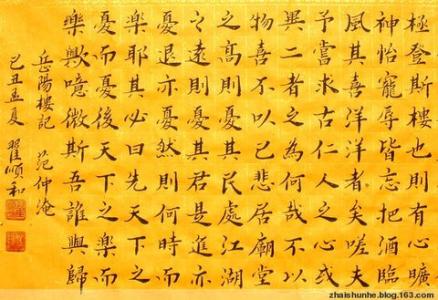 極登斯樓也則有心曠
神怡寵辱皆忘把酒臨
風其喜洋洋者矣嗟夫
予嘗求古仁人之心或
異二者之為何哉不以
物喜不以己悲居廟堂
之高則憂其民處江湖
之遠則憂其君是進亦
憂退亦憂然則何時而
樂耶其必曰先天下之
憂而憂後天下之樂而
樂歟噫微斯吾誰與歸
岳陽樓記 范仲淹
己丑孟夏 翟順和
zhaishunhe.blog.163.com